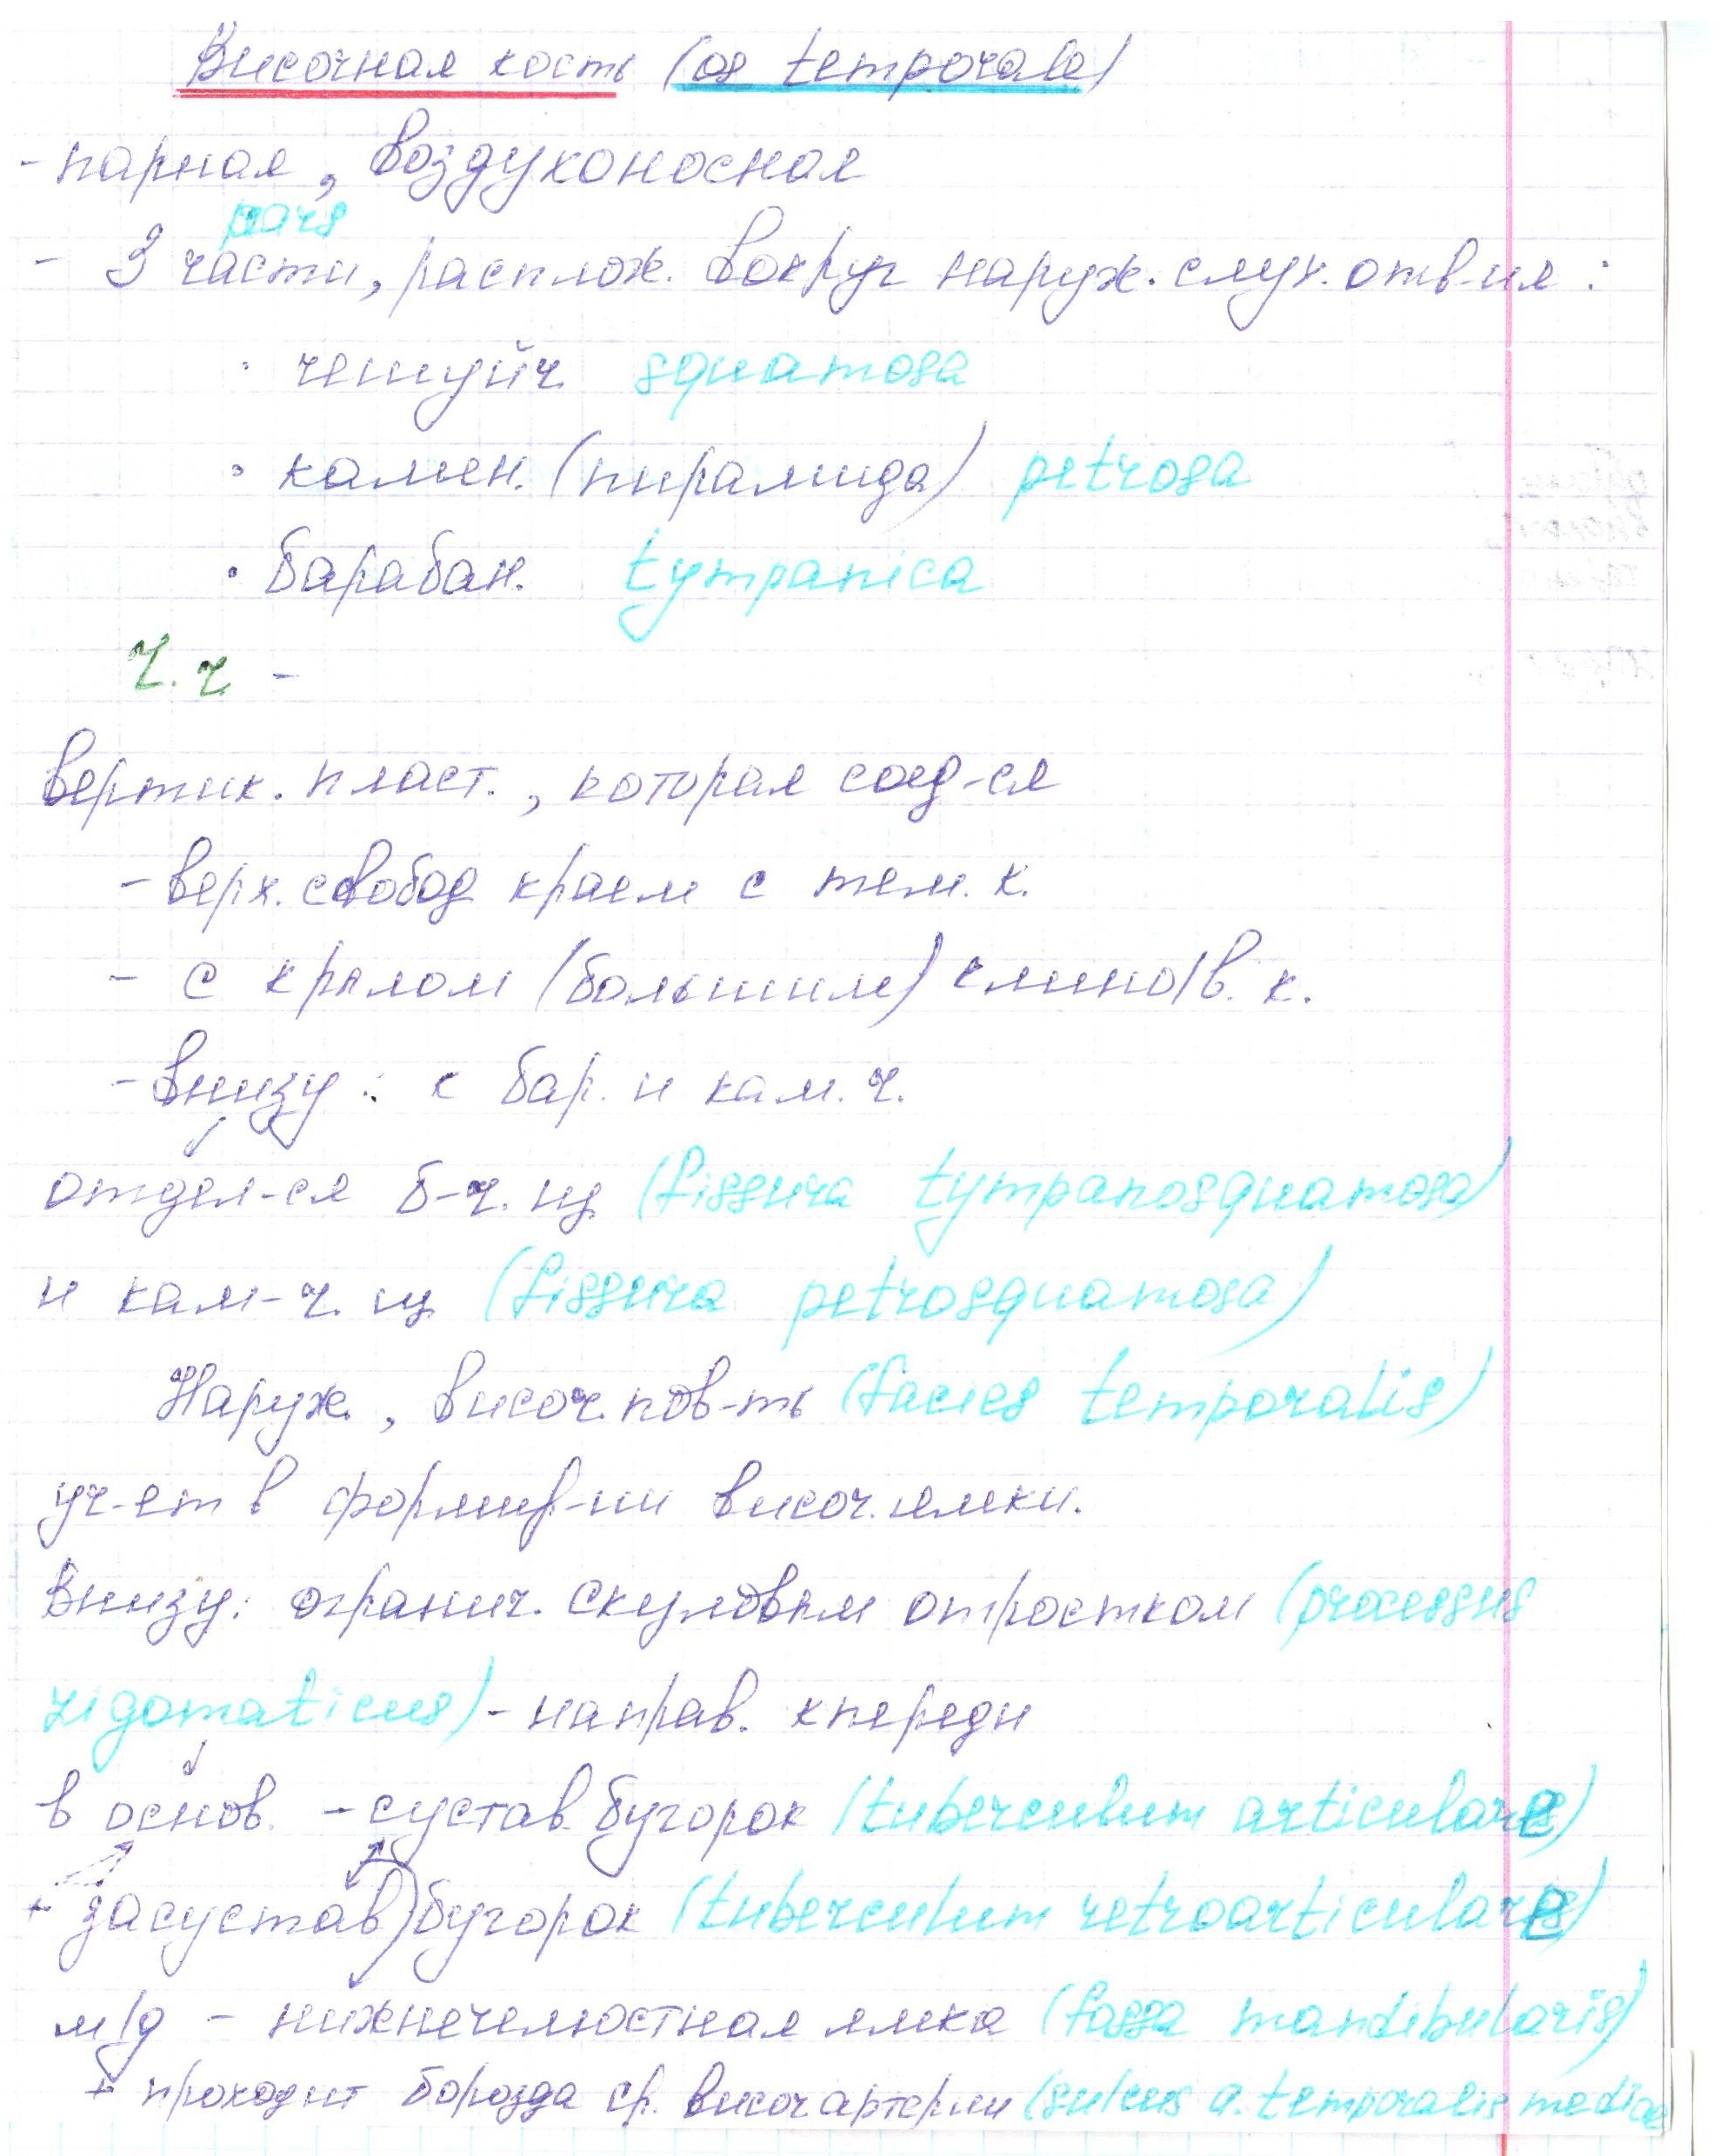 Височная кость (os temporale)
- парная, воздухоносная
pars
- 3 части, располож. вокруг наруж. слух. отв-ия:
· чешуйч. squamosa
· камен. (пирамида) petrosa
· барабан. tympanica
Ч.ч. -
вертик. пласт., которая соед-ся
- верх. свобод краем с тем. к.
- с крылом (большим) клинов. к.
- внизу: к бар. и кам. ч.
отдел-ся б-ч. щ. (fissura tympanosquamosa)
и кам-ч. щ. (fissura petrosquamosa)
Наруж., височ. пов-ть (facies temporalis)
уч-ет в формир-ии височ. ямки.
Внизу: огранич. скуловым отростком (processus
zigomaticus) - направ. кпереди
в основ. - сустав. бугорок (tuberculum articulare)
+ засустав) бугорок (tuberculum retroarticulare)
м/д - нижнечелюстная ямка (fossa mandibularis)
+ проходит борозда ср. височ артерии (sulcus a. temporalis mediae